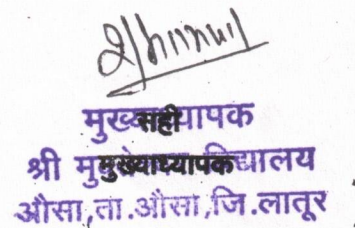 मुख्याध्यापक
सही
श्री विद्यालय
मुख्याध्यापक
औसा,ता.औसा,जि.लातूर